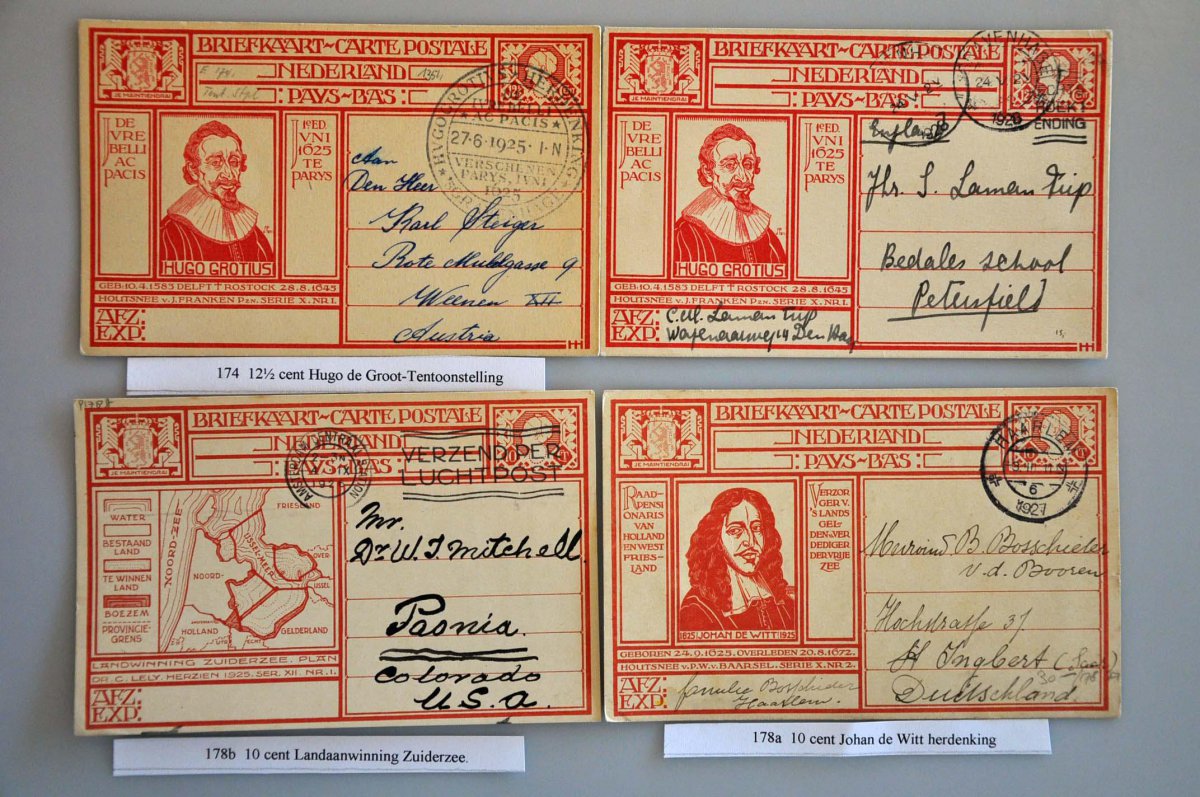 BRIEFKAART~CARTE POSTALE
NEDERLAND
PAYS-BAS
JE MAINTIENDRAI
DE JVRE BELLI AC PACIS
1e ED. JVNI 1625 TE PARYS
HUGO GROTIUS
GEB: 10.4.1583 DELFT † ROSTOCK 28.8.1645
HOUTSNEE v. J. FRANKEN Pzn. SERIE X. NR 1.
AFZ:
EXP:
HUGO GROTIUS HERDENKING
AC PACIS
27·6·1925·1·N
VERSCHENEN
PARYS, IVNI
1625
Aan
Den Heer
Karl Steiger
Rote Muldgasse 9
Weenen XII
Austria
174 12½ cent Hugo de Groot-Tentoonstelling
BRIEFKAART~CARTE POSTALE
NEDERLAND
PAYS-BAS
JE MAINTIENDRAI
DE JVRE BELLI AC PACIS
1e ED. JVNI 1625 TE PARYS
HUGO GROTIUS
GEB: 10.4.1583 DELFT † ROSTOCK 28.8.1645
HOUTSNEE v. J. FRANKEN Pzn. SERIE X. NR 1.
AFZ:
EXP:
1926
England
Jhr. S. Laman Trip
Bedales school
Petersfield
C.W. Laman Trip
Den Haag
BRIEFKAART~CARTE POSTALE
NEDERLAND
PAYS-BAS
JE MAINTIENDRAI
VERZEND PER
LUCHTPOST
WATER
BESTAAND LAND
TE WINNEN LAND
BOEZEM
PROVINCIE-GRENS
NOORD-ZEE
FRIESLAND
IJSSEL-MEER
OVER-IJSSEL
NOORD-
HOLLAND
UTRECHT
GELDERLAND
LANDWINNING ZUIDERZEE. PLAN
DR. C. LELY. HERZIEN 1925. SER. XII. NR. 1.
AFZ:
EXP:
Mr.
Dr. W. J. Mitchell
Paonia
Colorado
U.S.A.
178b 10 cent Landaanwinning Zuiderzee.
BRIEFKAART~CARTE POSTALE
NEDERLAND
PAYS-BAS
JE MAINTIENDRAI
RAADPENSIONARIS VAN HOLLAND EN WEST FRIESLAND
VERZORGER V. 'S LANDS GELDEN & VERDEDIGER DER VRIJE ZEE
1625 JOHAN DE WITT 1925
GEBOREN 24.9.1625. OVERLEDEN 20.8.1672.
HOUTSNEE v. P.W.v. BAARSEL. SERIE X. NR 2.
AFZ:
EXP:
HAARLEM
1927
B. Bosschieter
v.d. Booren
Hochstrasse 37
St Ingbert (Saar)
Duitschland
familie Bosschieter
Haarlem
178a 10 cent Johan de Witt herdenking